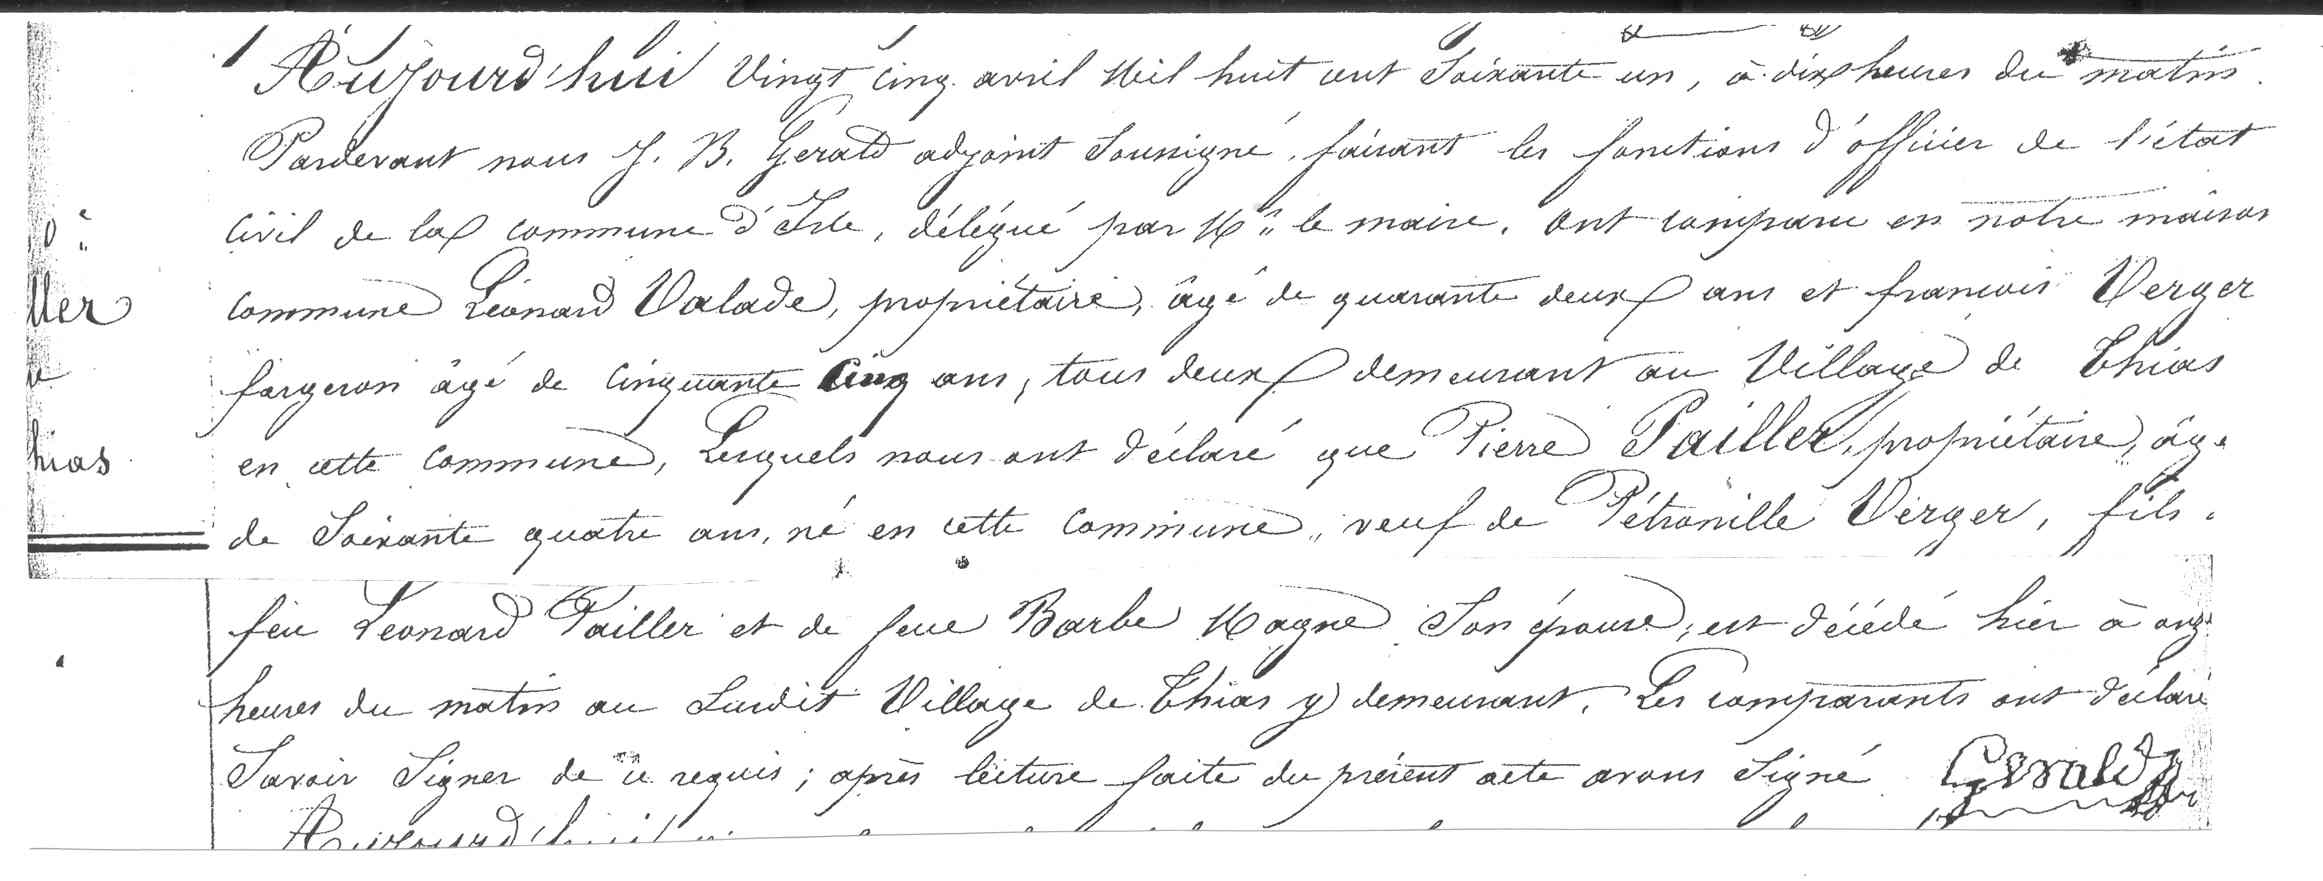 Aujourd'hui Vingt cinq avril Mil huit cent Soixante un, à dix heures du matin.
Pardevant nous J. B. Gerald adjoint Soussigné, faisant les fonctions d'officier de l'état
Civil de la commune d'Isle, délégué par Mr le maire. Ont comparu en notre maison
llier
commune Léonard Valade, propriétaire, âgé de quarante deux ans et francois Verger
forgeron âgé de cinquante cinq ans, tous deux demeurant au Village de Thias
hias
en cette commune, Lesquels nous ont déclaré que Pierre Pailler, propriétaire, âgé
de Soixante quatre ans, né en cette commune, veuf de Pétronille Verger, fils
feu Léonard Pailler et de feue Barbe Magne Son épouse, est décédé hier à onz
heures du matin au Susdit Village de Thias y demeurant. Les comparants ont déclaré
Savoir Signer de ce requis ; après lecture faite du présent acte avons Signé Gerald
Aujourd'hui